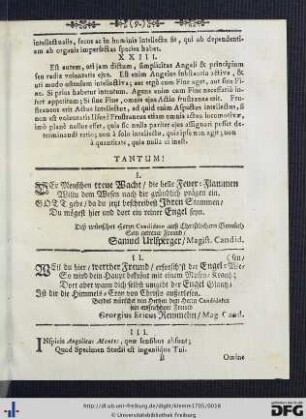 intellectualis, secus ac in hominis intellectu fit, qui ob dependenti-
am ab organis imperfectas species habet.
XXIII.
Est autem, uti jam dictum, simplicitas Angeli & principium
seu radix voluntatis ejus. Est enim Angelus substantia activa, &
uti modo ostendum intellectiva; aut ergò cum Fine aget, aut sine Fi-
ne. Si prius habetur intentum. Agens enim cum Fine necessariò in-
fert appetitum; Si sine Fine, omnis ejus Actio frustranea erit. Fru-
stranea erit Actus Intellectus, ad quid enim Aspectus intellectus, si
non est voluntatis Usus? Frustranea etiam omnis actus locomotivæ,
imò planè nullus esset, quia sic nulla pariter ejus assignari posset de-
terminandi ratio; non à solo intellectu, quia ipse non agit; non
à quantitate, quia nulla ei inest.
TANTUM!
I.
WEr Menschen treue Wacht/ die helle Feuer-Flammen
Wiltu dem Wesen nach die gründlich prägen ein.
GOTT gebe/ da du jetzt beschreibest Ihren Stammen/
Du mögest hier und dort ein reiner Engel seyn.
Diß wünschet Herrn Candidaten auß Christlichem Gemüth
Sein getreuer Freund/
Samuel Urlsperger/ Magist. Candid.
II.
WEil du hier/ werther Freund/ erforsch'st der Engel-We-
(sen/
So wird dein Haupt bekrönt mit einem Musen-Krantz:
Dort aber wann dich selbst umgibt der Engel Glantz/
Ist dir die Himmels-Cron von Christo außerlesen.
Georgius Ericus Remmelin/ Mag. Cand.
III.
INspicis Angelicas Mentes, quæ sensibus absunt;
Quod Specimen Studii est ingeniique Tui.
B
Omine
http://dl.ub.uni-freiburg.de/diglit/klemm1705/0018
© Universitätsbibliothek Freiburg